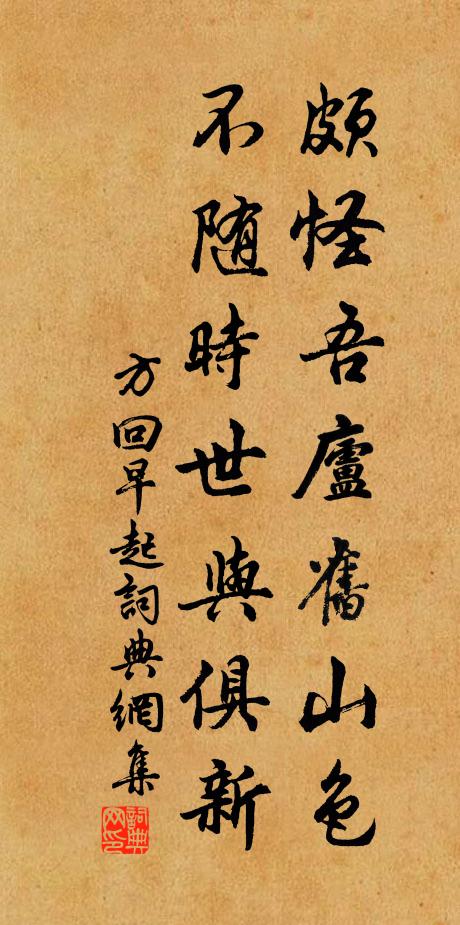 頗怪吾廬舊山色
不随時世與俱新
方回早起詞典網集
詞典网印